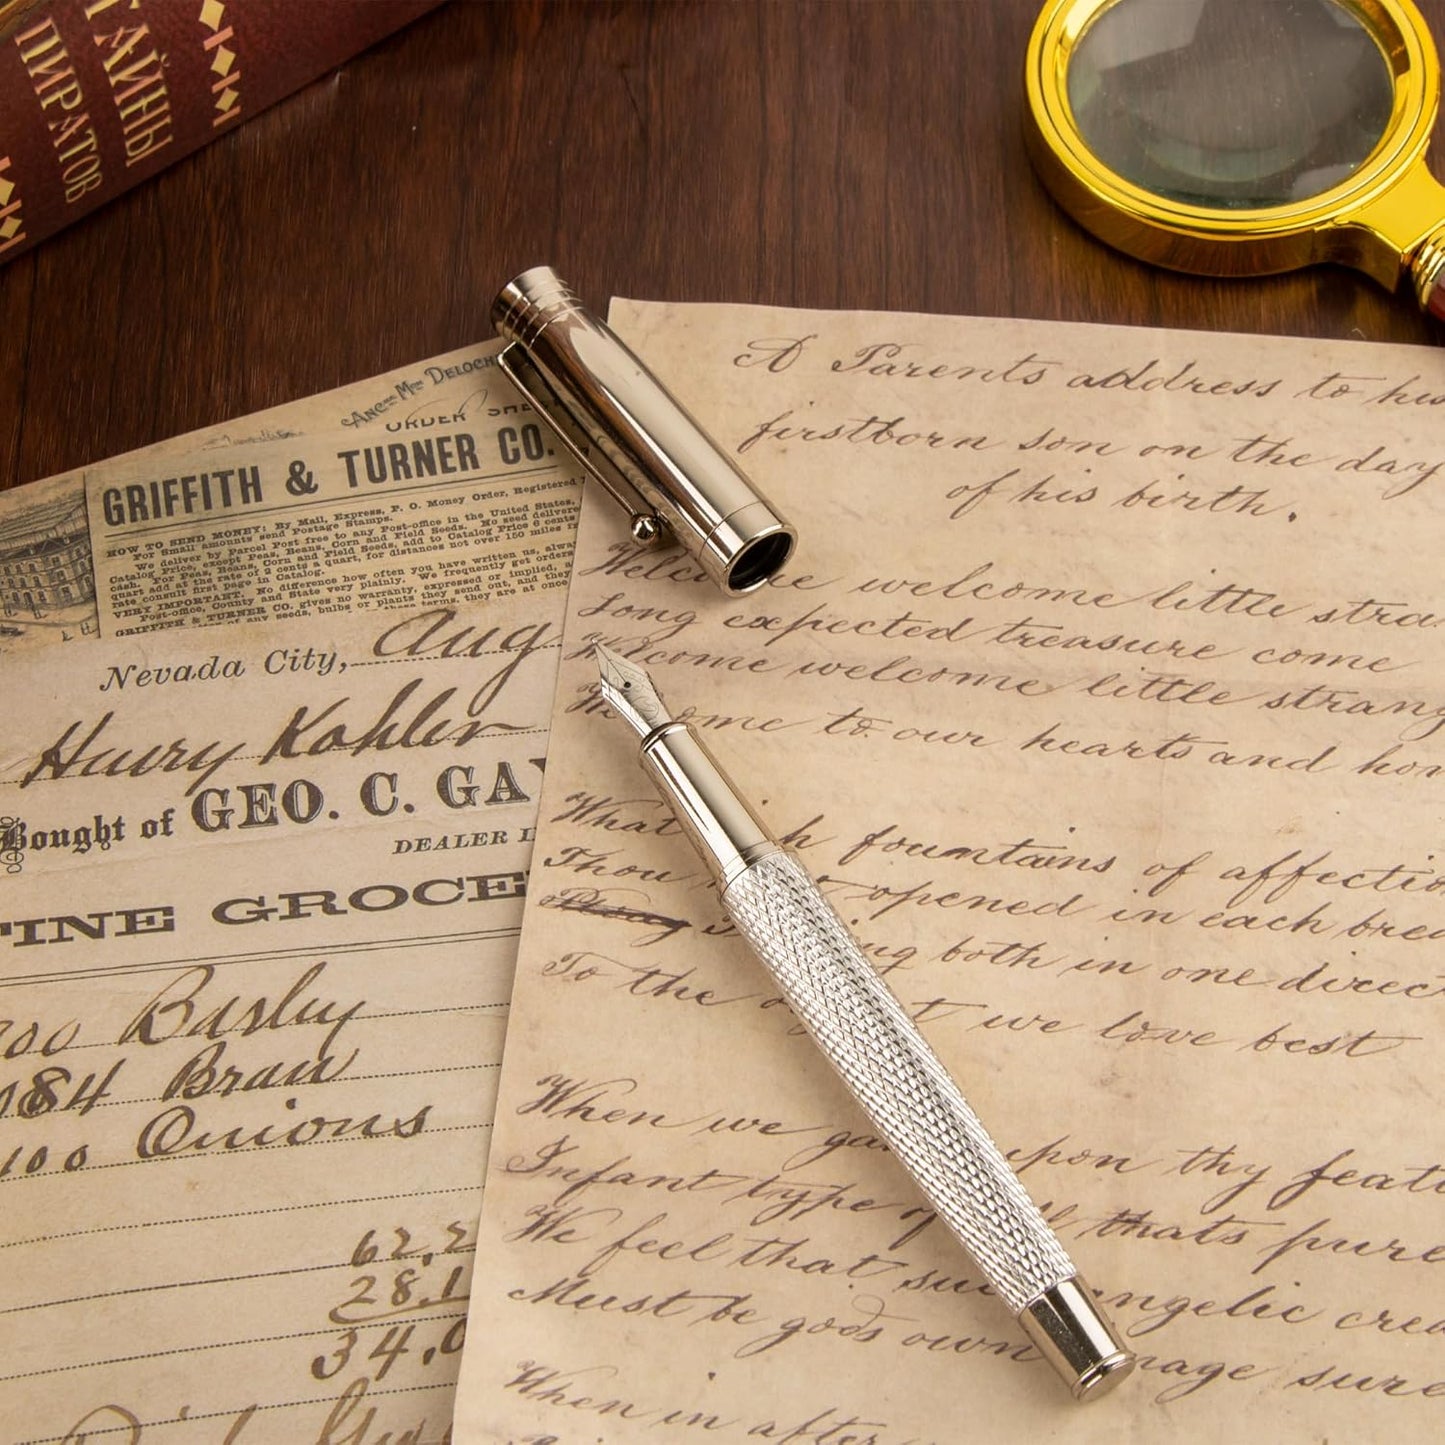 ТАЙНЫ
ПИРАТОВ
ORDER
GRIFFITH & TURNER CO.
HOW TO SEND MONEY: By Mail, Express, P. O. Money Order, Registered
For Small amounts send Postage Stamps.
We deliver by Parcel Post free to any Post-office in the United States,
Catalog Price, except Peas, Beans, Corn and Field Seeds. No seed delivere
cash. For Peas, Beans, Corn and Field Seeds, add to Catalog Price 6 cents
quart add at the rate of 2 cents a quart, for distances not over 150 miles
rate consult first page in Catalog.
VERY IMPORTANT. No difference how often you have written us, alwa
Post-office, County and State very plainly. We frequently get orders
GRIFFITH & TURNER CO. gives no warranty, expressed or implied, a
of any seeds, bulbs or plants they send out, and they
these terms, they are at once
Nevada City, Aug
Harry Kohler
Bought of GEO. C. GA
DEALER
GROCE
Barley
84 Bran
100 Onions
62,2
28,1
34,0
A Parents address to his
firstborn son on the day
of his birth.
welcome little stra
Long expected treasure come
Welcome welcome little strang
We ome to our hearts and hom
What h fountains of affectio
Thou opened in each brea
ing both in one direct
To the we love best
When we ga upon thy featu
Infant type of thats pure
We feel that su ngelic crea
Must be gods own mage sure
When in after